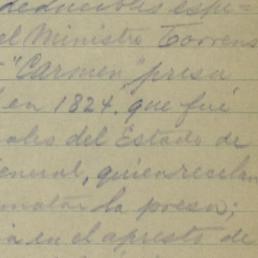 deducibles espe=
el Ministro Torrens
"Carmen", presa
en 1824. que fué
ales del Estado de
eneral, quien recelan
matar la presa;
a en el apresto de